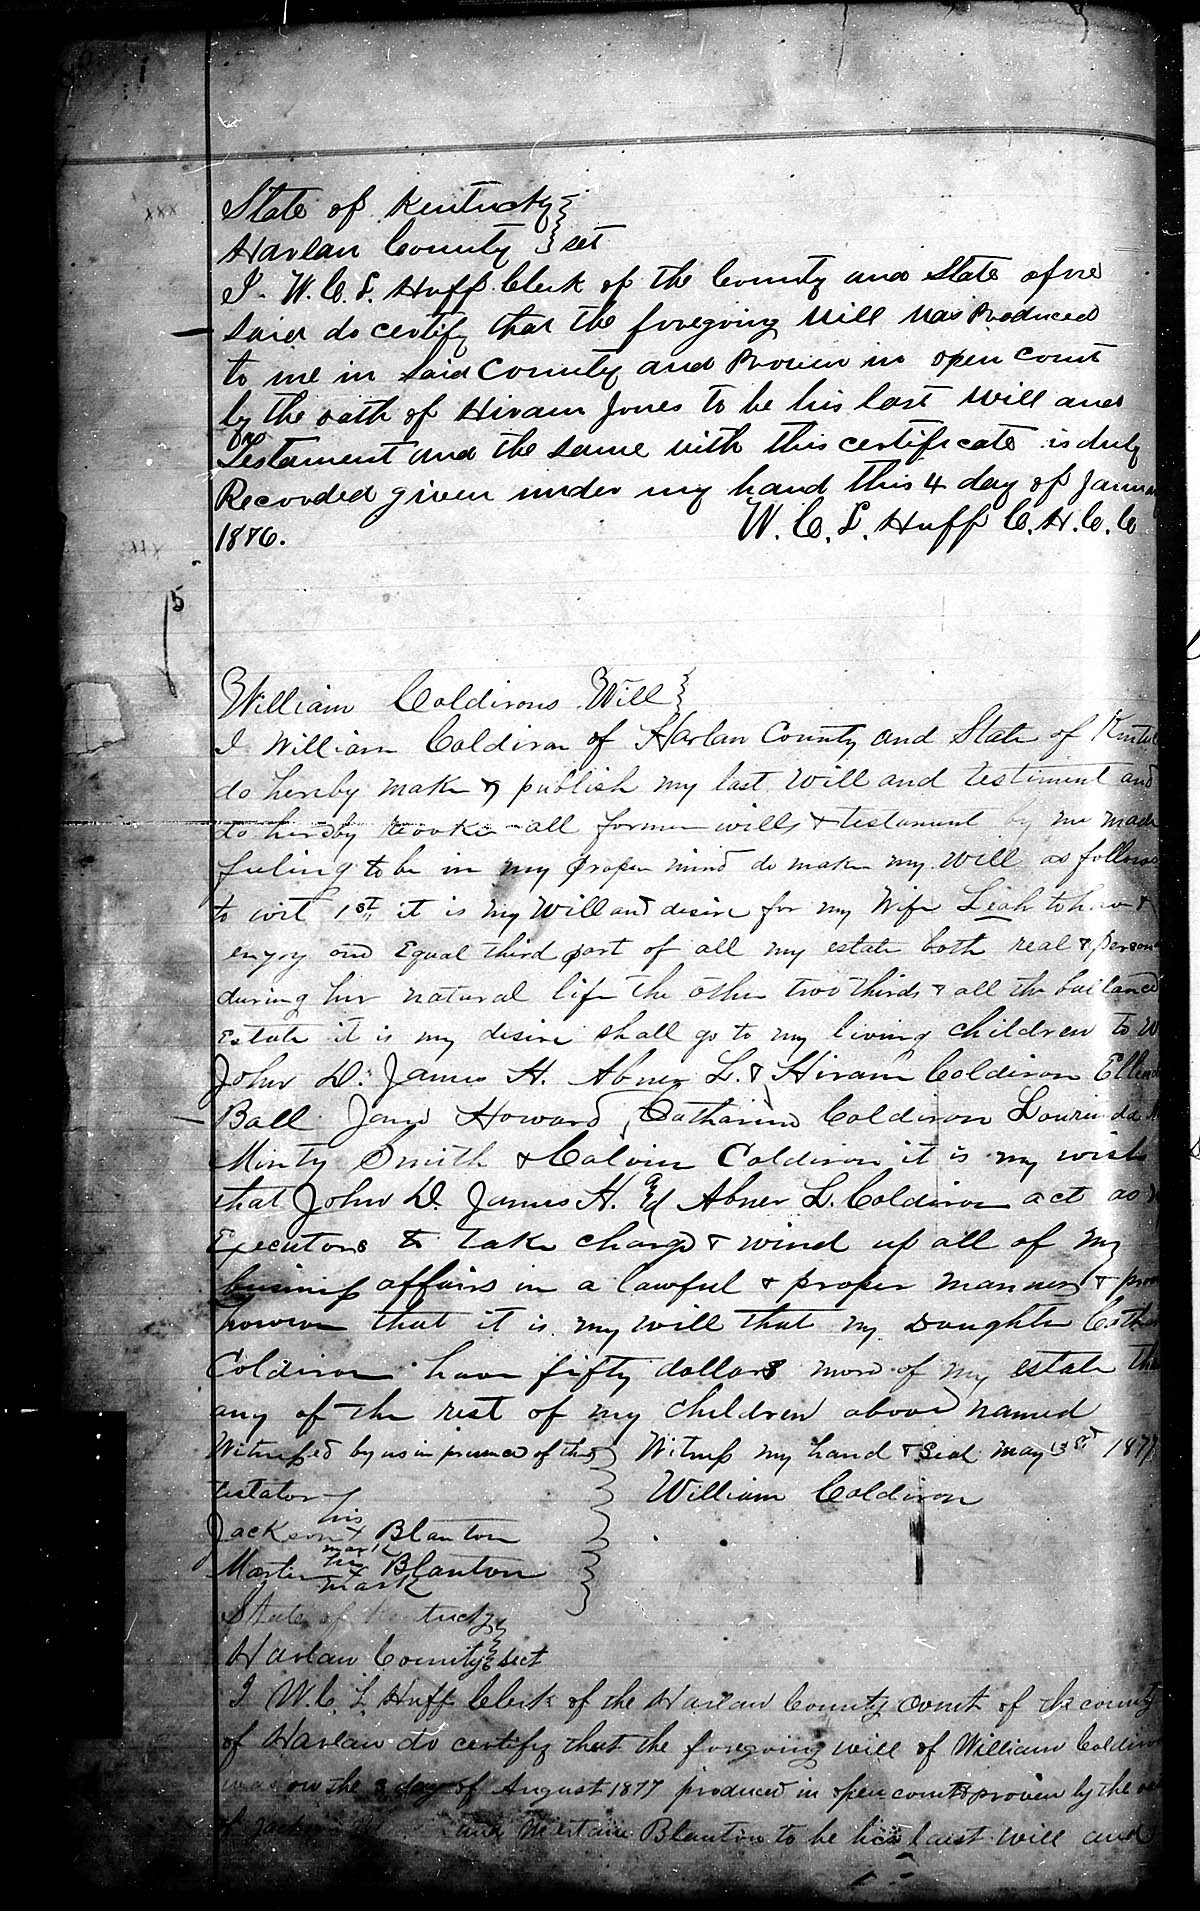 State of Kentucky
Harlan County } sct
I. W. C. L. Huff Clerk of the County and State afore
said do certify that the foregoing Will was Produced
to me in said County and Proven in open court
by the oath of Hiram Jones to be his last Will and
Testament and the same with this certificate is duly
Recorded given under my hand this 4 day of Janu
1876. W. C. L. Huff C. H. C. C
5
William Coldirons Will
I William Coldiron of Harlan County and State of Kentu
do hereby make & publish my last Will and testiment and
do hereby revoke all former wills & testament by me made
feeling to be in my proper mind do make my will as follows
to wit 1st it is my Will and desire for my Wife Leah to have &
enjoy one Equal third part of all my estate both real & person
during her natural life the other two thirds & all the ballance
Estate it is my desire shall go to my living children to w
John D. James H. Abner L. & Hiram Coldiron Ellen
Ball Jane Howard, Catharine Coldiron Lourinda
Minty Smith & Calvin Coldiron it is my wish
that John D. James H. and Abner L. Coldiron act as
Executors to take charge & wind up all of my
business affairs in a lawful & proper manner & pro
however that it is my will that my Daughter Cath
Coldiron have fifty dollars more of my estate tha
any of the rest of my children above named
Witnessed by us in presence of the Witness my hand & Seal May 13th 1877
testator William Coldiron
Jackson his x mark Blanton
Martin his x mark Blanton
State of Kentucky
Harlan County } sect
I W. C. L Huff Clerk of the Harlan County Court of the county
of Harlan do certify that the foregoing will of William Coldiro
was on the day of August 1877 produced in open court & proven by the
of and Blanton to be his last will and